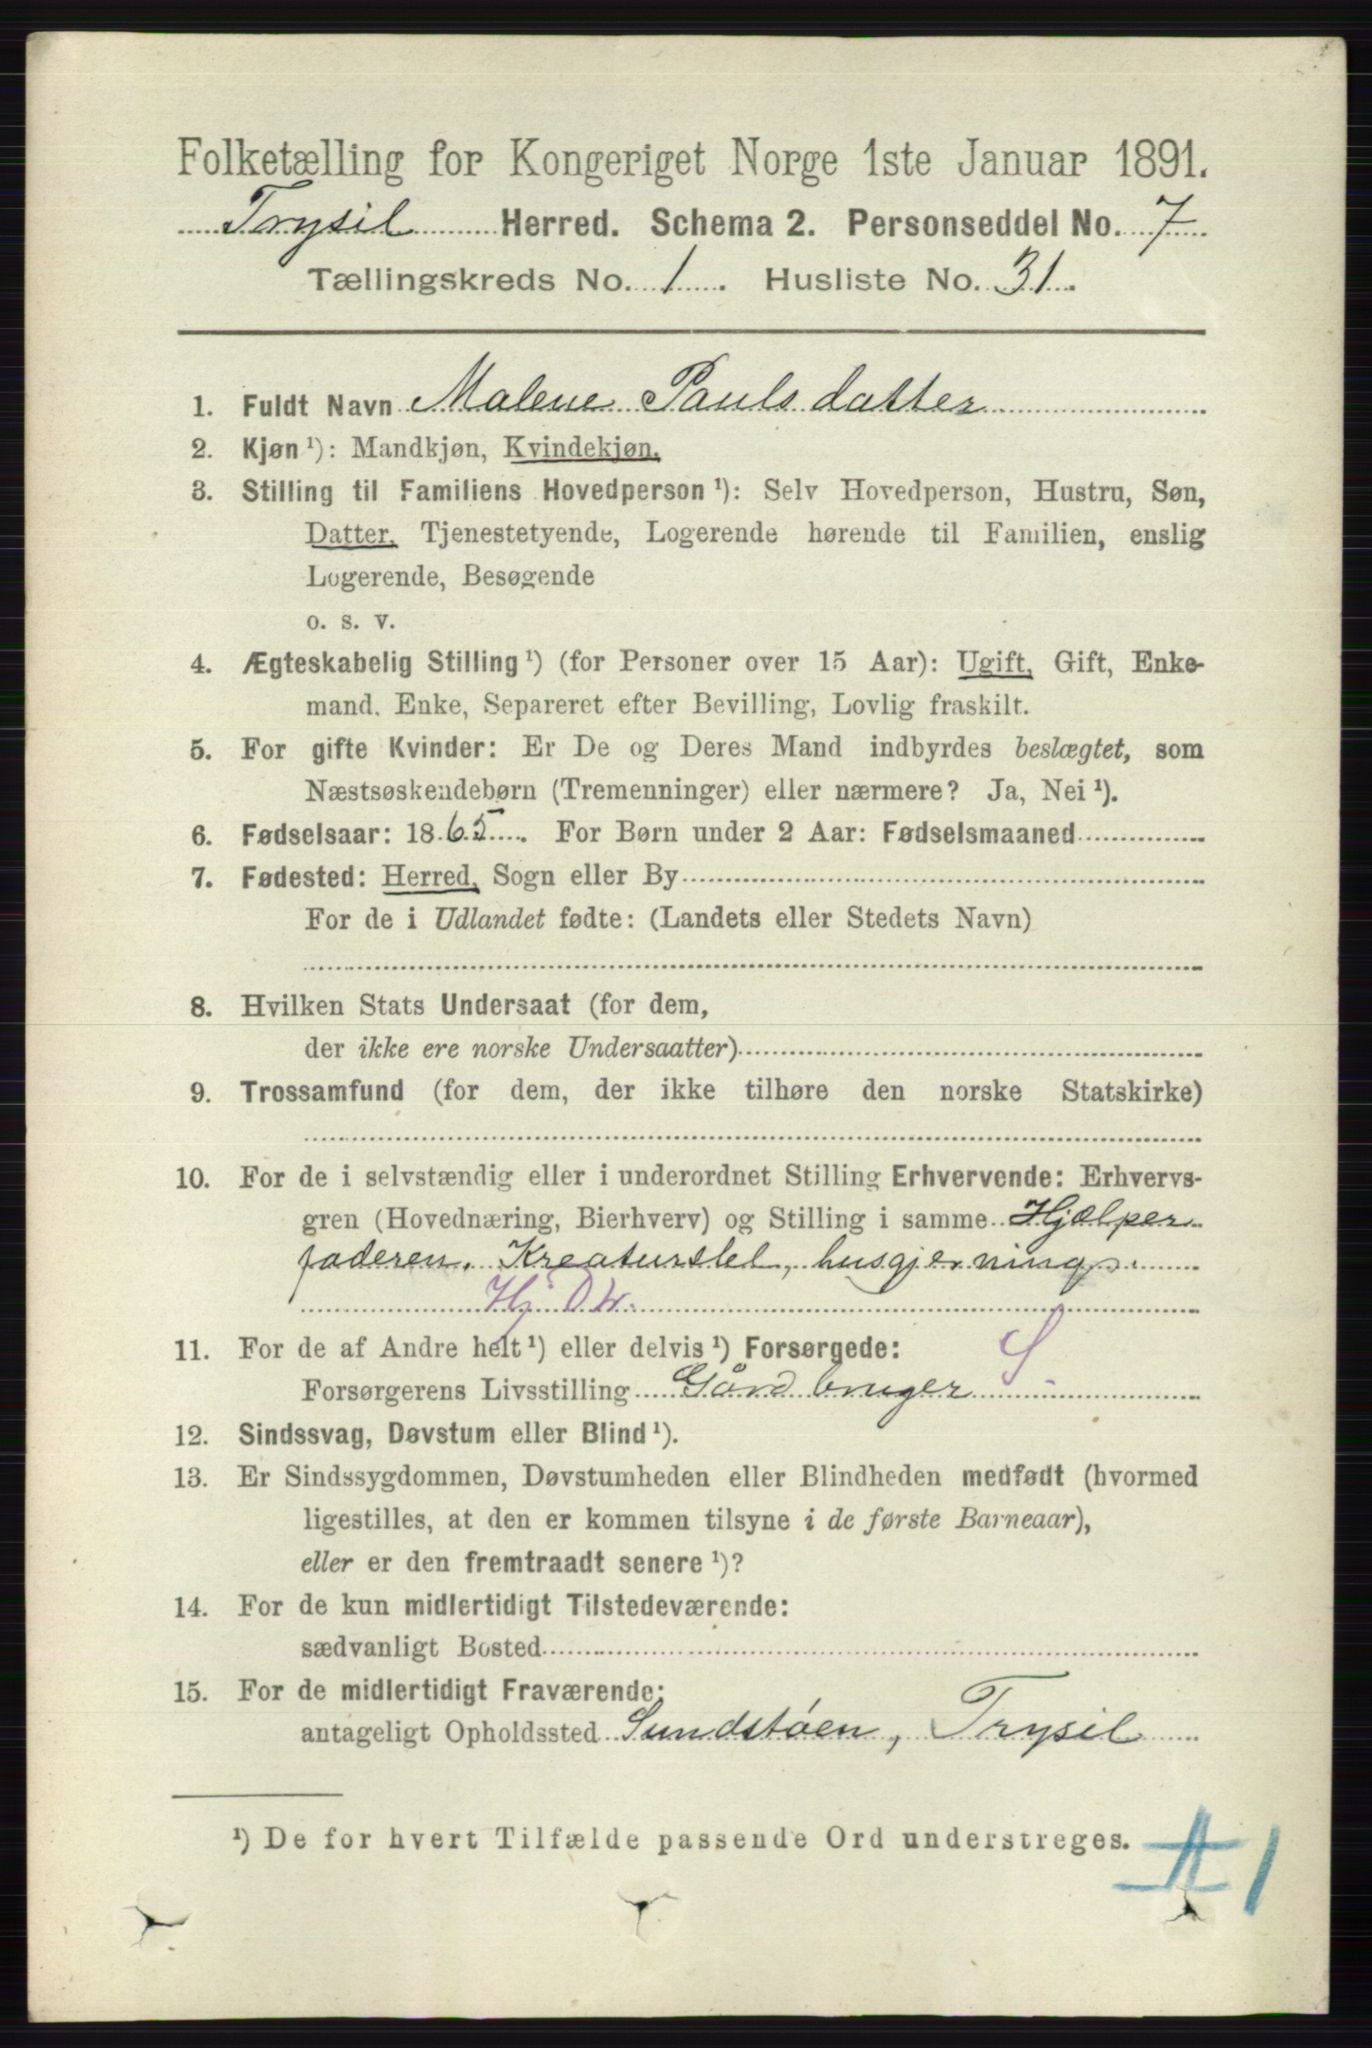 Folketælling for Kongeriget Norge 1ste Januar 1891.
Trysil Herred. Schema 2. Personseddel No. 7
Tællingskreds No. 1. Husliste No. 31.
1. Fuldt Navn Malene Pauls datter
2. Kjøn ¹): Mandkjøn, Kvindekjøn.
3. Stilling til Familiens Hovedperson ¹): Selv Hovedperson, Hustru, Søn,
Datter, Tjenestetyende, Logerende hørende til Familien, enslig
Logerende, Besøgende
o. s. v.
4. Ægteskabelig Stilling ¹) (for Personer over 15 Aar): Ugift, Gift, Enke-
mand, Enke, Separeret efter Bevilling, Lovlig fraskilt.
5. For gifte Kvinder: Er De og Deres Mand indbyrdes beslægtet, som
Næstsøskendebørn (Tremenninger) eller nærmere? Ja, Nei ¹).
6. Fødselsaar: 1865. For Børn under 2 Aar: Fødselsmaaned
7. Fødested: Herred, Sogn eller By
For de i Udlandet fødte: (Landets eller Stedets Navn)
8. Hvilken Stats Undersaat (for dem,
der ikke ere norske Undersaatter)
9. Trossamfund (for dem, der ikke tilhøre den norske Statskirke)
10. For de i selvstændig eller i underordnet Stilling Erhvervende: Erhvervs-
gren (Hovednæring, Bierhverv) og Stilling i samme Hjælper
faderen. Kreaturstel, husgjerning.
Hj
11. For de af Andre helt ¹) eller delvis ¹) Forsørgede: S.
Forsørgerens Livsstilling Gård bruger
12. Sindssvag, Døvstum eller Blind ¹).
13. Er Sindssygdommen, Døvstumheden eller Blindheden medfødt (hvormed
ligestilles, at den er kommen tilsyne i de første Barneaar),
eller er den fremtraadt senere ¹)?
14. For de kun midlertidigt Tilstedeværende:
sædvanligt Bosted
15. For de midlertidigt Fraværende:
antageligt Opholdssted Sundstøen, Trysil
¹) De for hvert Tilfælde passende Ord understreges.
1